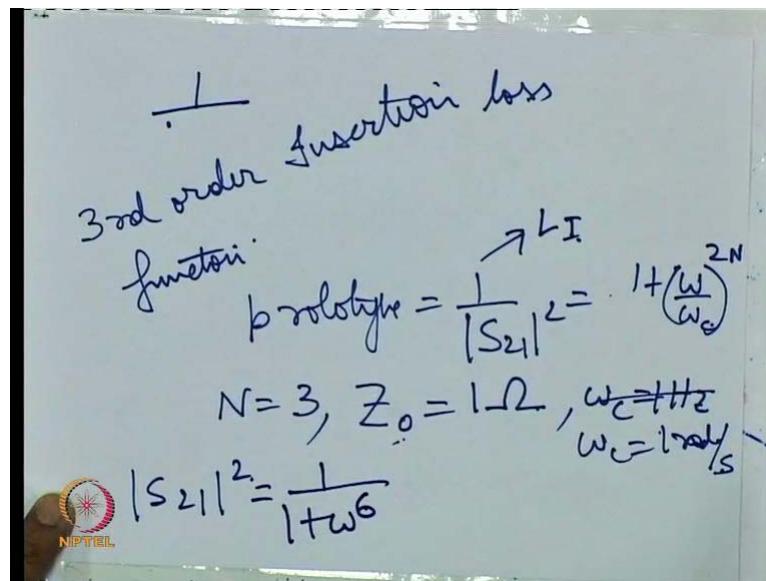 1
3rd order Insertion loss
function.
prototype = 1/|S21|^2 = 1+(ω/ωc)^2N
→ LI
N=3, Z0 = 1Ω, ωc=1Hz
ωc=1rad/s
|S21|^2 = 1/1+ω^6
NPTEL